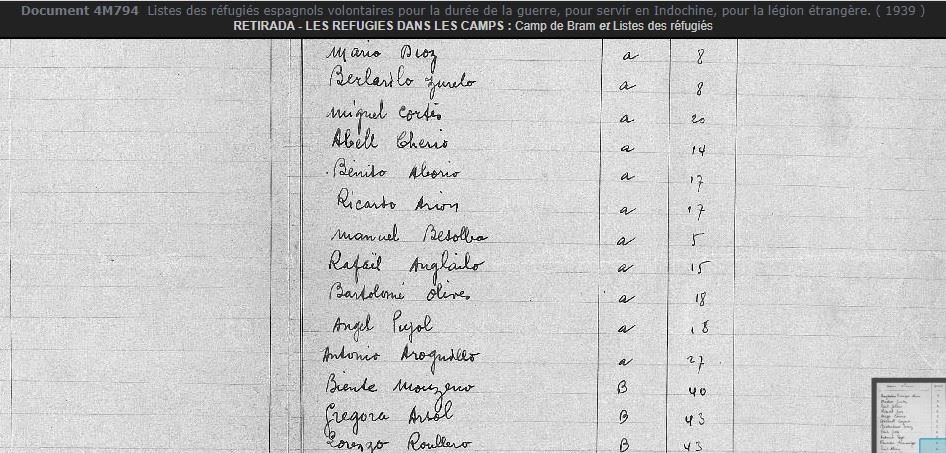 Document 4M794 Listes des réfugiés espagnols volontaires pour la durée de la guerre, pour servir en Indochine, pour la légion étrangère. ( 1939 )
RETIRADA - LES REFUGIES DANS LES CAMPS : Camp de Bram et Listes des réfugiés
Mario Dioz a 8
Berlarilo Zurelo a 8
Miguel Cortès a 20
Abell Cherio a 14
Benito Aborio a 17
Ricardo Arion a 17
Manuel Besolba a 5
Rafaël Anglailo a 15
Bartolomé Olives a 18
Angel Pujol a 18
Antonio Aroguillo a 27
Biente Mouzeno B 40
Gregora Arsol B 43
Lorenzo Roullero B 43